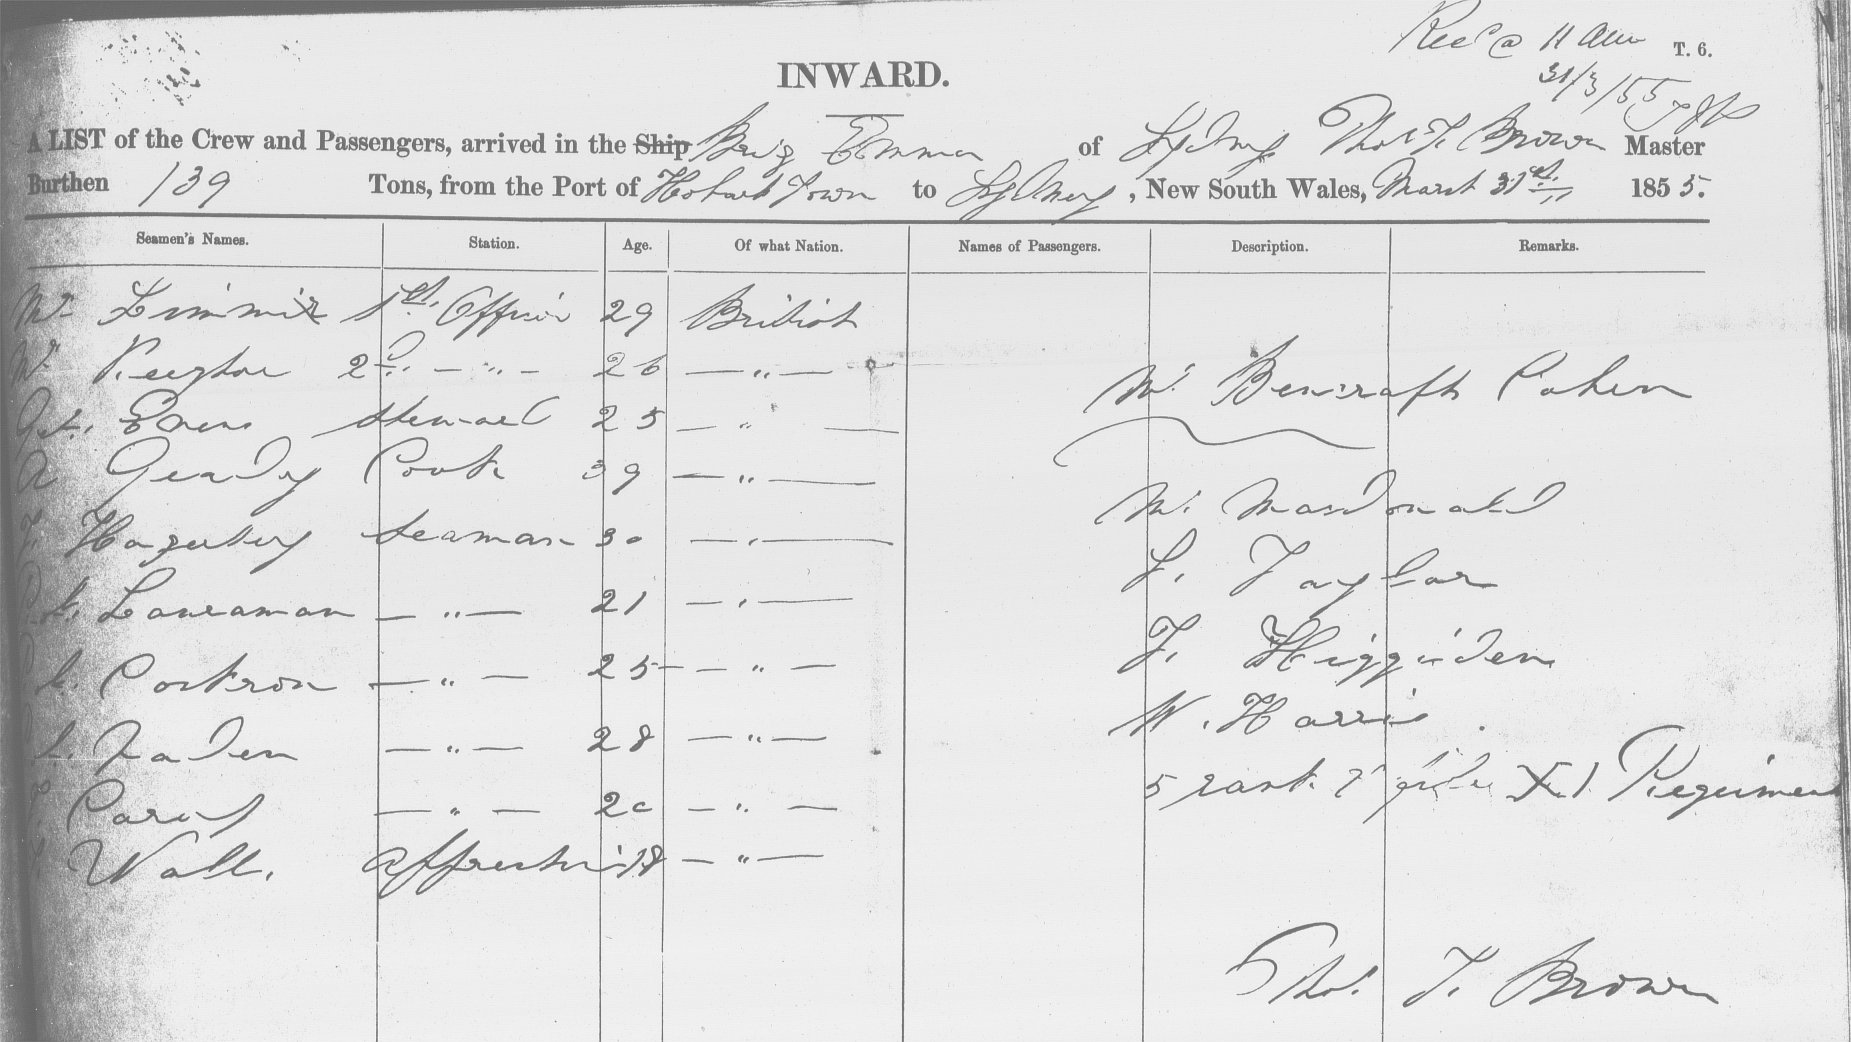 Recd @ 11 am T. 6.
31/3/55
INWARD.
A LIST of the Crew and Passengers, arrived in the Ship Brig Emma of Sydney Thos. T. Brown Master
Burthen 139 Tons, from the Port of Hobart Town to Sydney, New South Wales, March 31st. 1855.
Seamen's Names. Station. Age. Of what Nation. Names of Passengers. Description. Remarks.
Mr. 1st. Officer 29 British
Mr. 2d. — " — 26 — " —
Mr. Bencraft Cohen
Evens Steward 25 — " —
A Geardy Cook 39 — " —
Mr. MacDonald
Hagerty Seaman 30 — " —
T. Taylor
— " — 21 — " —
T. Higgiden
— " — 25 — " —
W. Harris.
Faden — " — 28 — " —
5 rank & file XI Regiment
— " — 20 — " —
Wall. Apprentice 18 — " —
Thos. T. Brown